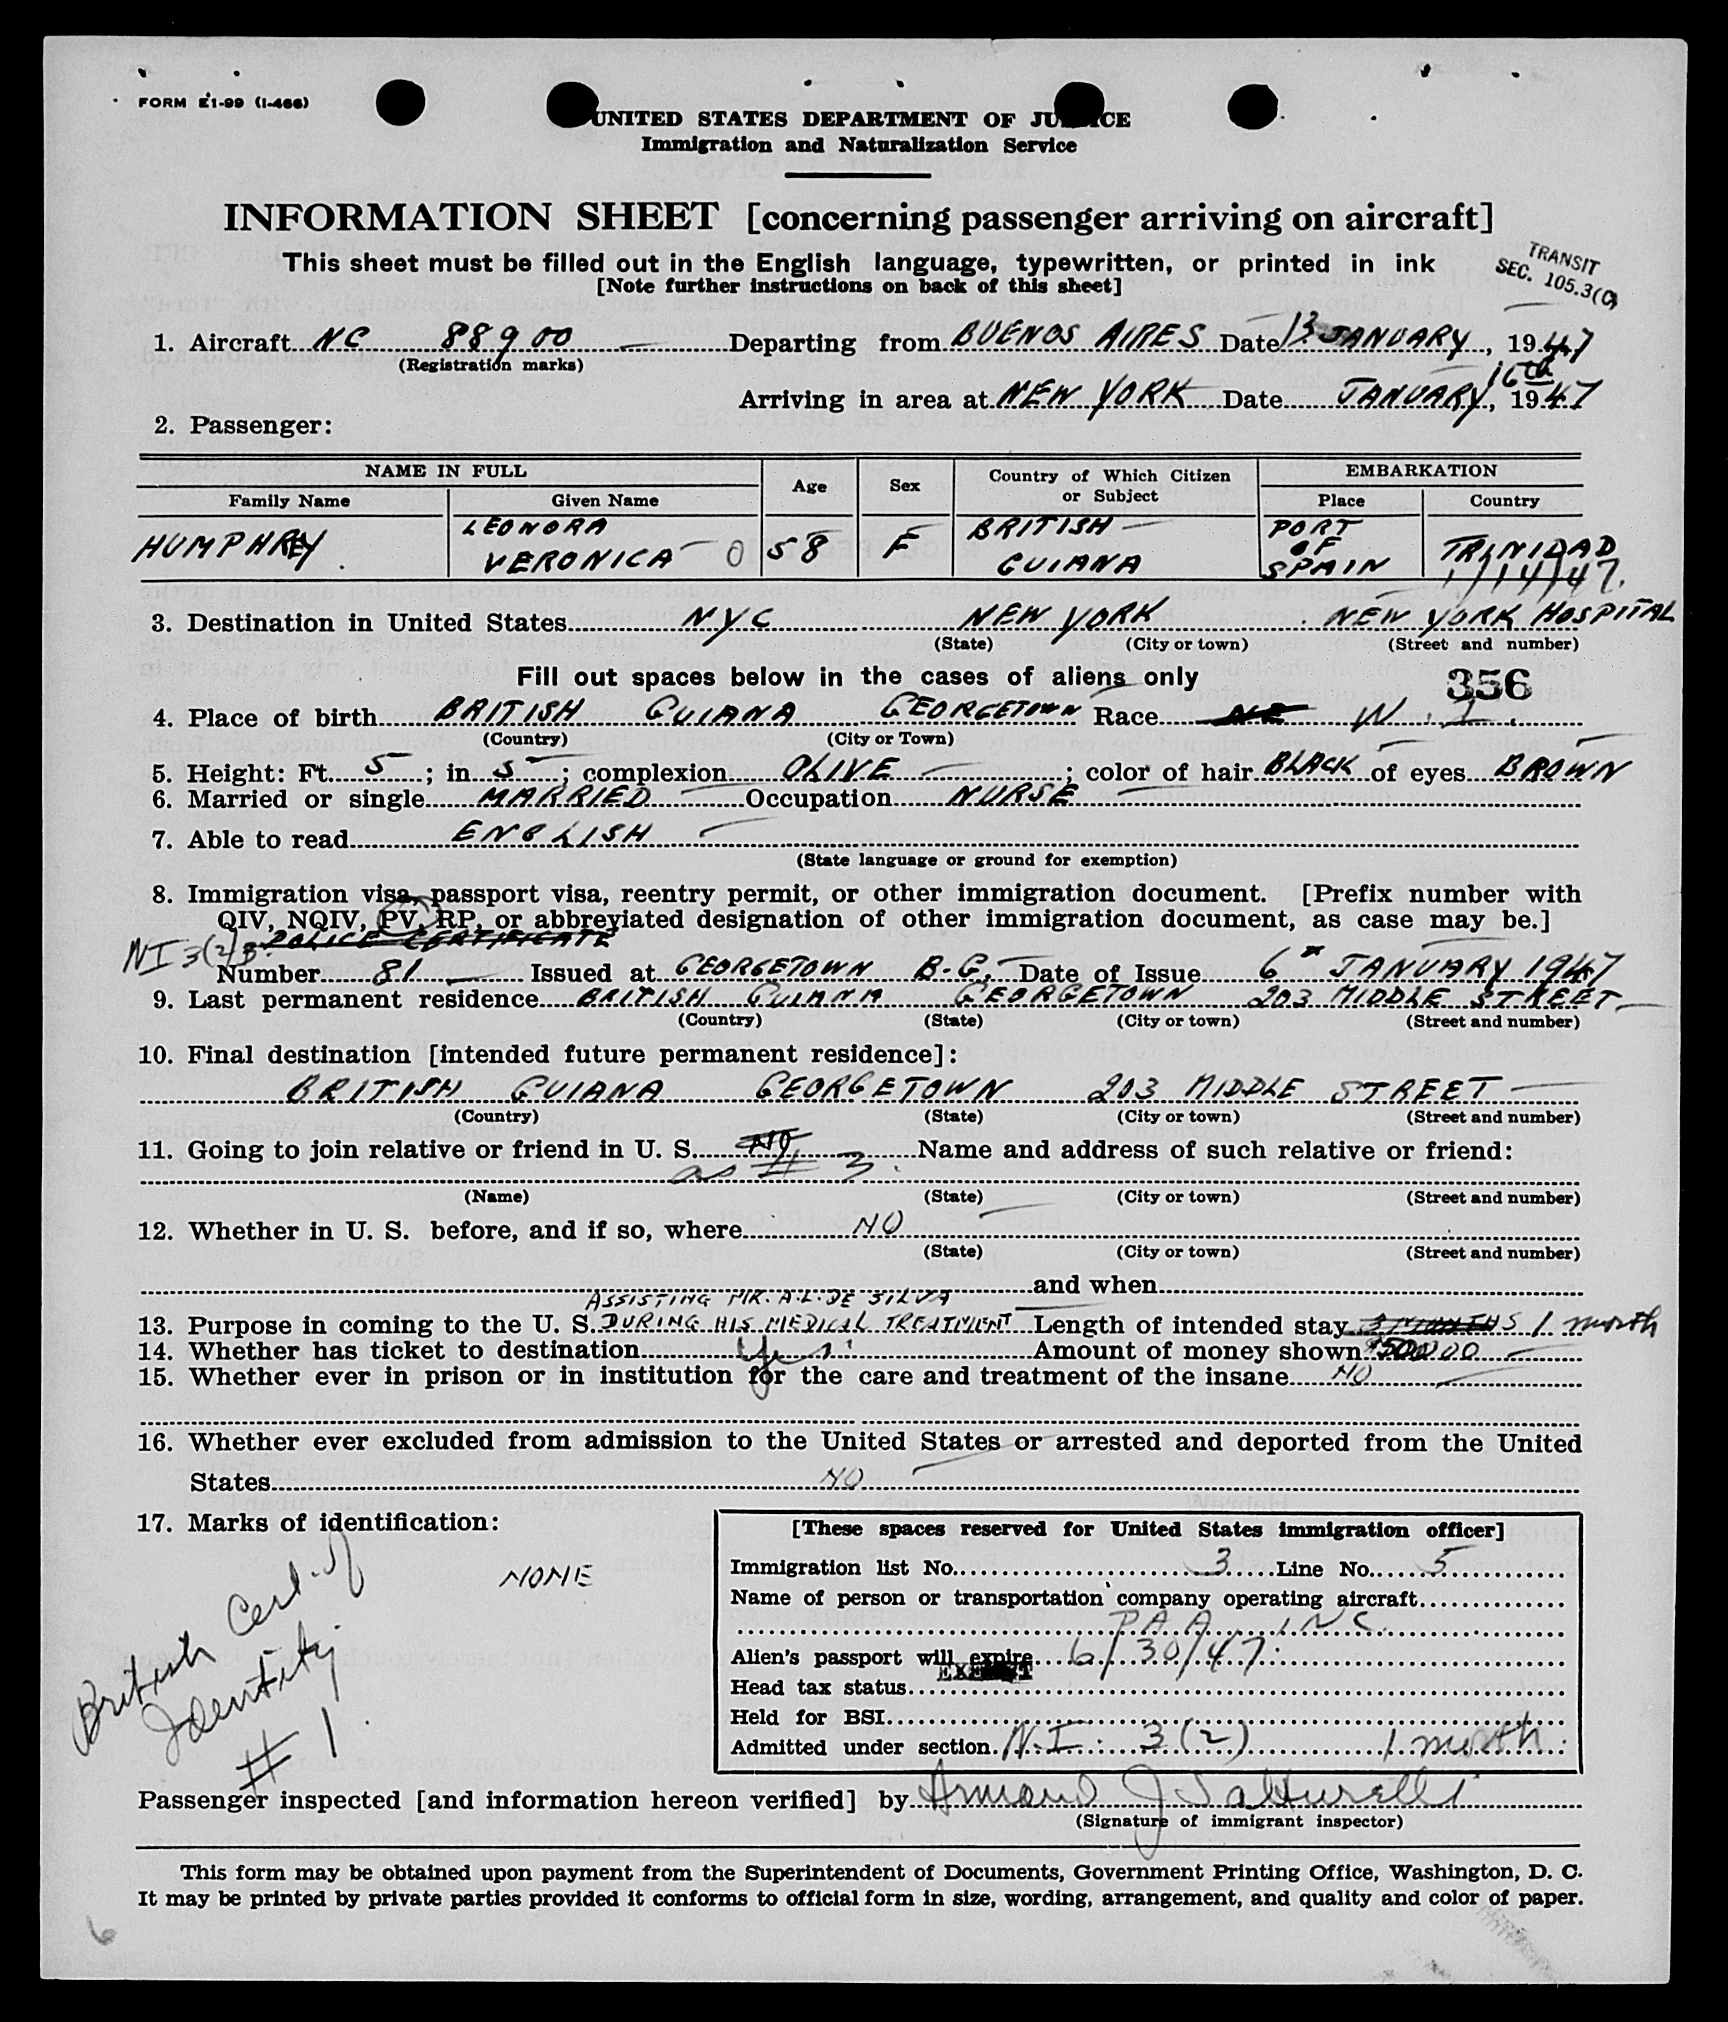 FORM E1-99 (I-466)
UNITED STATES DEPARTMENT OF JUSTICE
Immigration and Naturalization Service
INFORMATION SHEET [concerning passenger arriving on aircraft]
This sheet must be filled out in the English language, typewritten, or printed in ink
[Note further instructions on back of this sheet]
TRANSIT
SEC. 105.3(C)
1. Aircraft NC 88900 Departing from BUENOS AIRES Date 13 JANUARY, 1947
(Registration marks)
Arriving in area at NEW YORK Date JANUARY 16th, 1947
2. Passenger:
NAME IN FULL Age Sex Country of Which Citizen or Subject EMBARKATION
Family Name Given Name Place Country
HUMPHREY LEONORA VERONICA 0 58 F BRITISH GUIANA PORT OF SPAIN TRINIDAD
1/14/47.
3. Destination in United States NYC NEW YORK NEW YORK HOSPITAL
(State) (City or town) (Street and number)
Fill out spaces below in the cases of aliens only 356
4. Place of birth BRITISH GUIANA GEORGETOWN Race W. I.
(Country) (City or Town)
5. Height: Ft. 5; in. 5; complexion OLIVE; color of hair BLACK of eyes BROWN
6. Married or single MARRIED Occupation NURSE
7. Able to read ENGLISH
(State language or ground for exemption)
8. Immigration visa, passport visa, reentry permit, or other immigration document. [Prefix number with
QIV, NQIV, PV, RP, or abbreviated designation of other immigration document, as case may be.]
NI 3(2) B POLICE CERTIFICATE
Number 81 Issued at GEORGETOWN B.G. Date of Issue 6TH JANUARY 1947
9. Last permanent residence BRITISH GUIANA GEORGETOWN 203 MIDDLE STREET
(Country) (State) (City or town) (Street and number)
10. Final destination [intended future permanent residence]:
BRITISH GUIANA GEORGETOWN 203 MIDDLE STREET
(Country) (State) (City or town) (Street and number)
11. Going to join relative or friend in U. S. NO Name and address of such relative or friend:
as # 3.
(Name) (State) (City or town) (Street and number)
12. Whether in U. S. before, and if so, where NO
(State) (City or town) (Street and number)
and when
ASSISTING MR. A.L. DE SILVA
13. Purpose in coming to the U. S. DURING HIS MEDICAL TREATMENT Length of intended stay 3 MONTHS 1 month
14. Whether has ticket to destination Yes Amount of money shown $500.00
15. Whether ever in prison or in institution for the care and treatment of the insane NO
16. Whether ever excluded from admission to the United States or arrested and deported from the United
States NO
17. Marks of identification:
NONE
British Cert. of
Identity
# 1.
[These spaces reserved for United States immigration officer]
Immigration list No. 3 Line No. 5
Name of person or transportation company operating aircraft
P.A.A. INC.
Alien's passport will expire 6/30/47.
EXEMPT
Head tax status
Held for BSI
Admitted under section N.I. 3(2) 1 month
Passenger inspected [and information hereon verified] by Armand J
(Signature of immigrant inspector)
This form may be obtained upon payment from the Superintendent of Documents, Government Printing Office, Washington, D. C.
It may be printed by private parties provided it conforms to official form in size, wording, arrangement, and quality and color of paper.
6